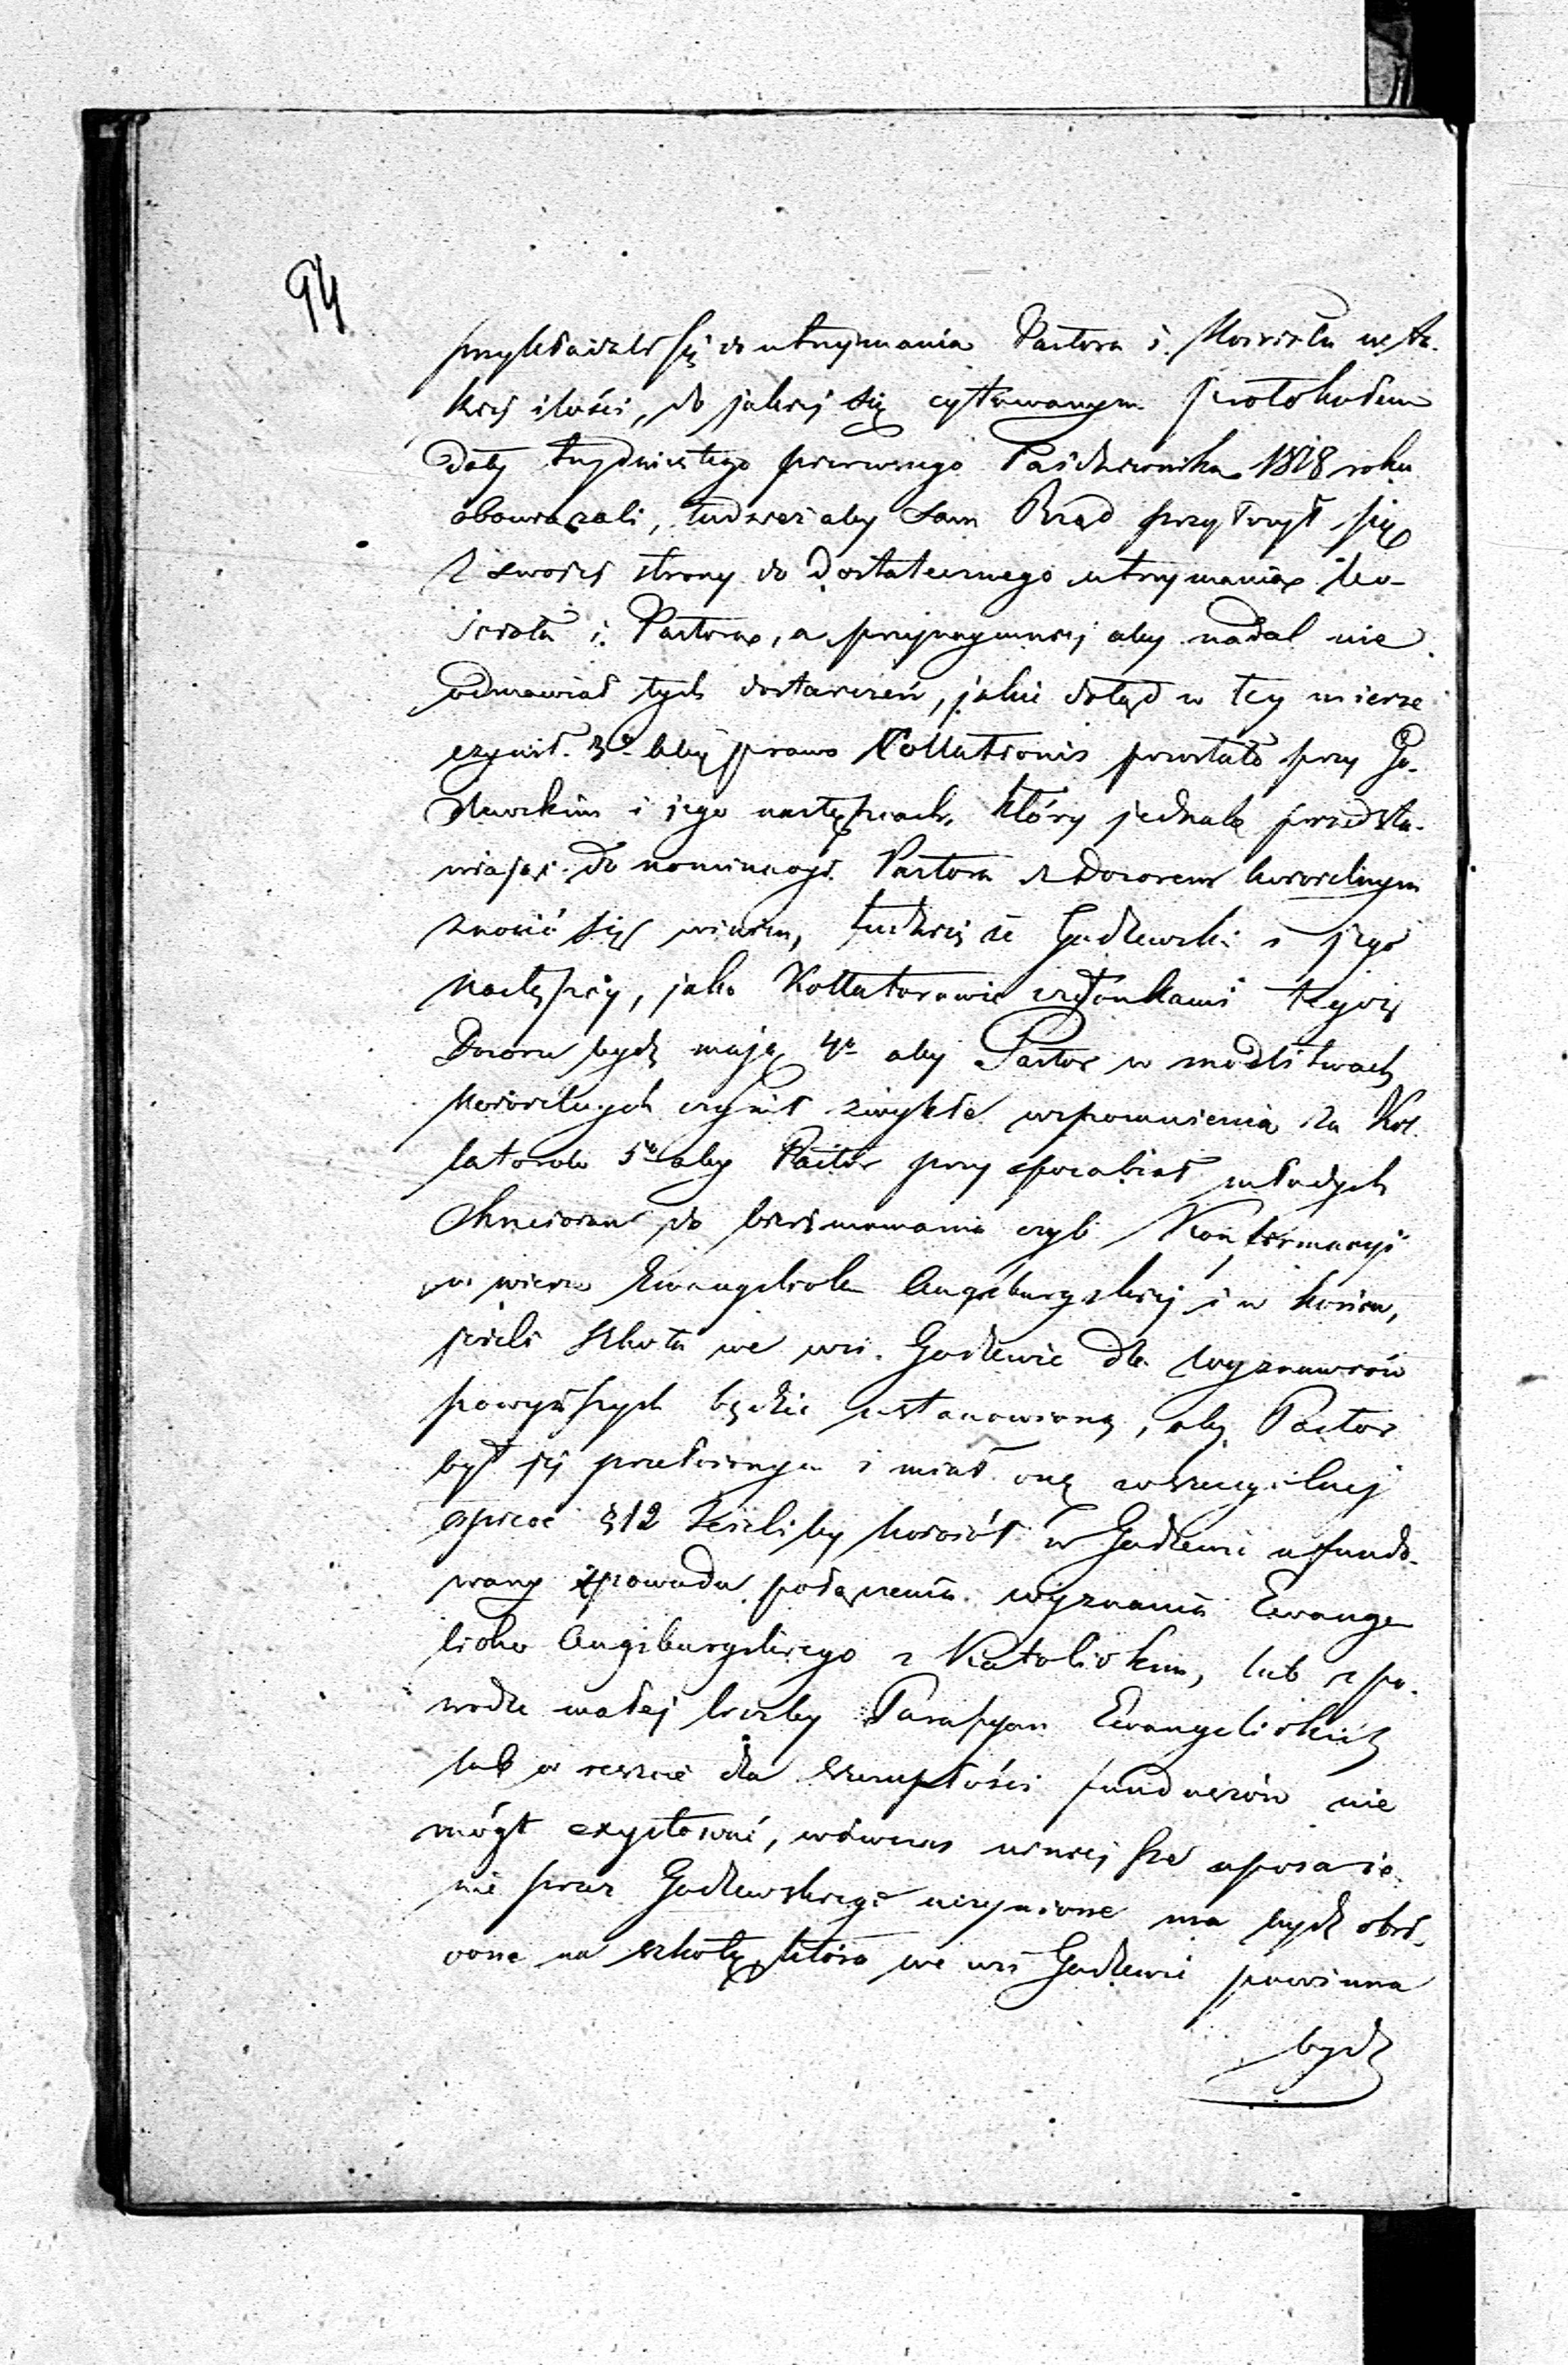 94
przykładali się do utrzymania Pastora i Kościoła w ta-
kiej ilości, do jakiej się cytowanym protokołem
daty trzydziestego pierwszego Października 1828 roku
obowiązali, tudzież aby sam Rząd przyłożył się
z swojej strony do dostatecznego utrzymania Ko-
ścioła i Pastora, a przynajmniej aby nadal nie
odmawiał tych dostarczeń, jakie dotąd w tey mierze
czynił. 3o aby prawo Collationis pozostało przy Go-
dlewskim i jego następcach, który jednak przedsta-
wiając do nominacyi Pastora z Dozorem kościelnym
znosić się winien, tudzież że Godlewski i jego
następcy, jako Kollatorowie członkami tegoż
Dozoru bydź mają 4o aby Pastor w modlitwach
kościelnych czynił zwykłe wspomnienia za Kol-
latorów 5o aby Pastor przysposabiał młodych
Chrześcian do bierzmowania czyli Konfirmacyi
w wierze Ewangelicko Augsburgskiej i w końcu,
jeżeli szkoła we wsi Godlewie dla wyznawców
powyższych będzie ustanowioną, aby Pastor
był jej przełożonym i miał onę w szczególnej
opiece §12 Jeżeliby kościół w Godlewie ufundo-
wany z powodu połączenia wyznania Ewange-
licko Augsburgskiego z Katolickim, lub z po-
wodu małej liczby Parafian Ewangelickich
lub w reszcie dla szczupłości funduszów nie
mógł exystować, wówczas niniejsze uposaże-
nie przez Godlewskiego uczynione ma bydź obró-
cone na szkołę, która we wsi Godlewie powinna
bydź